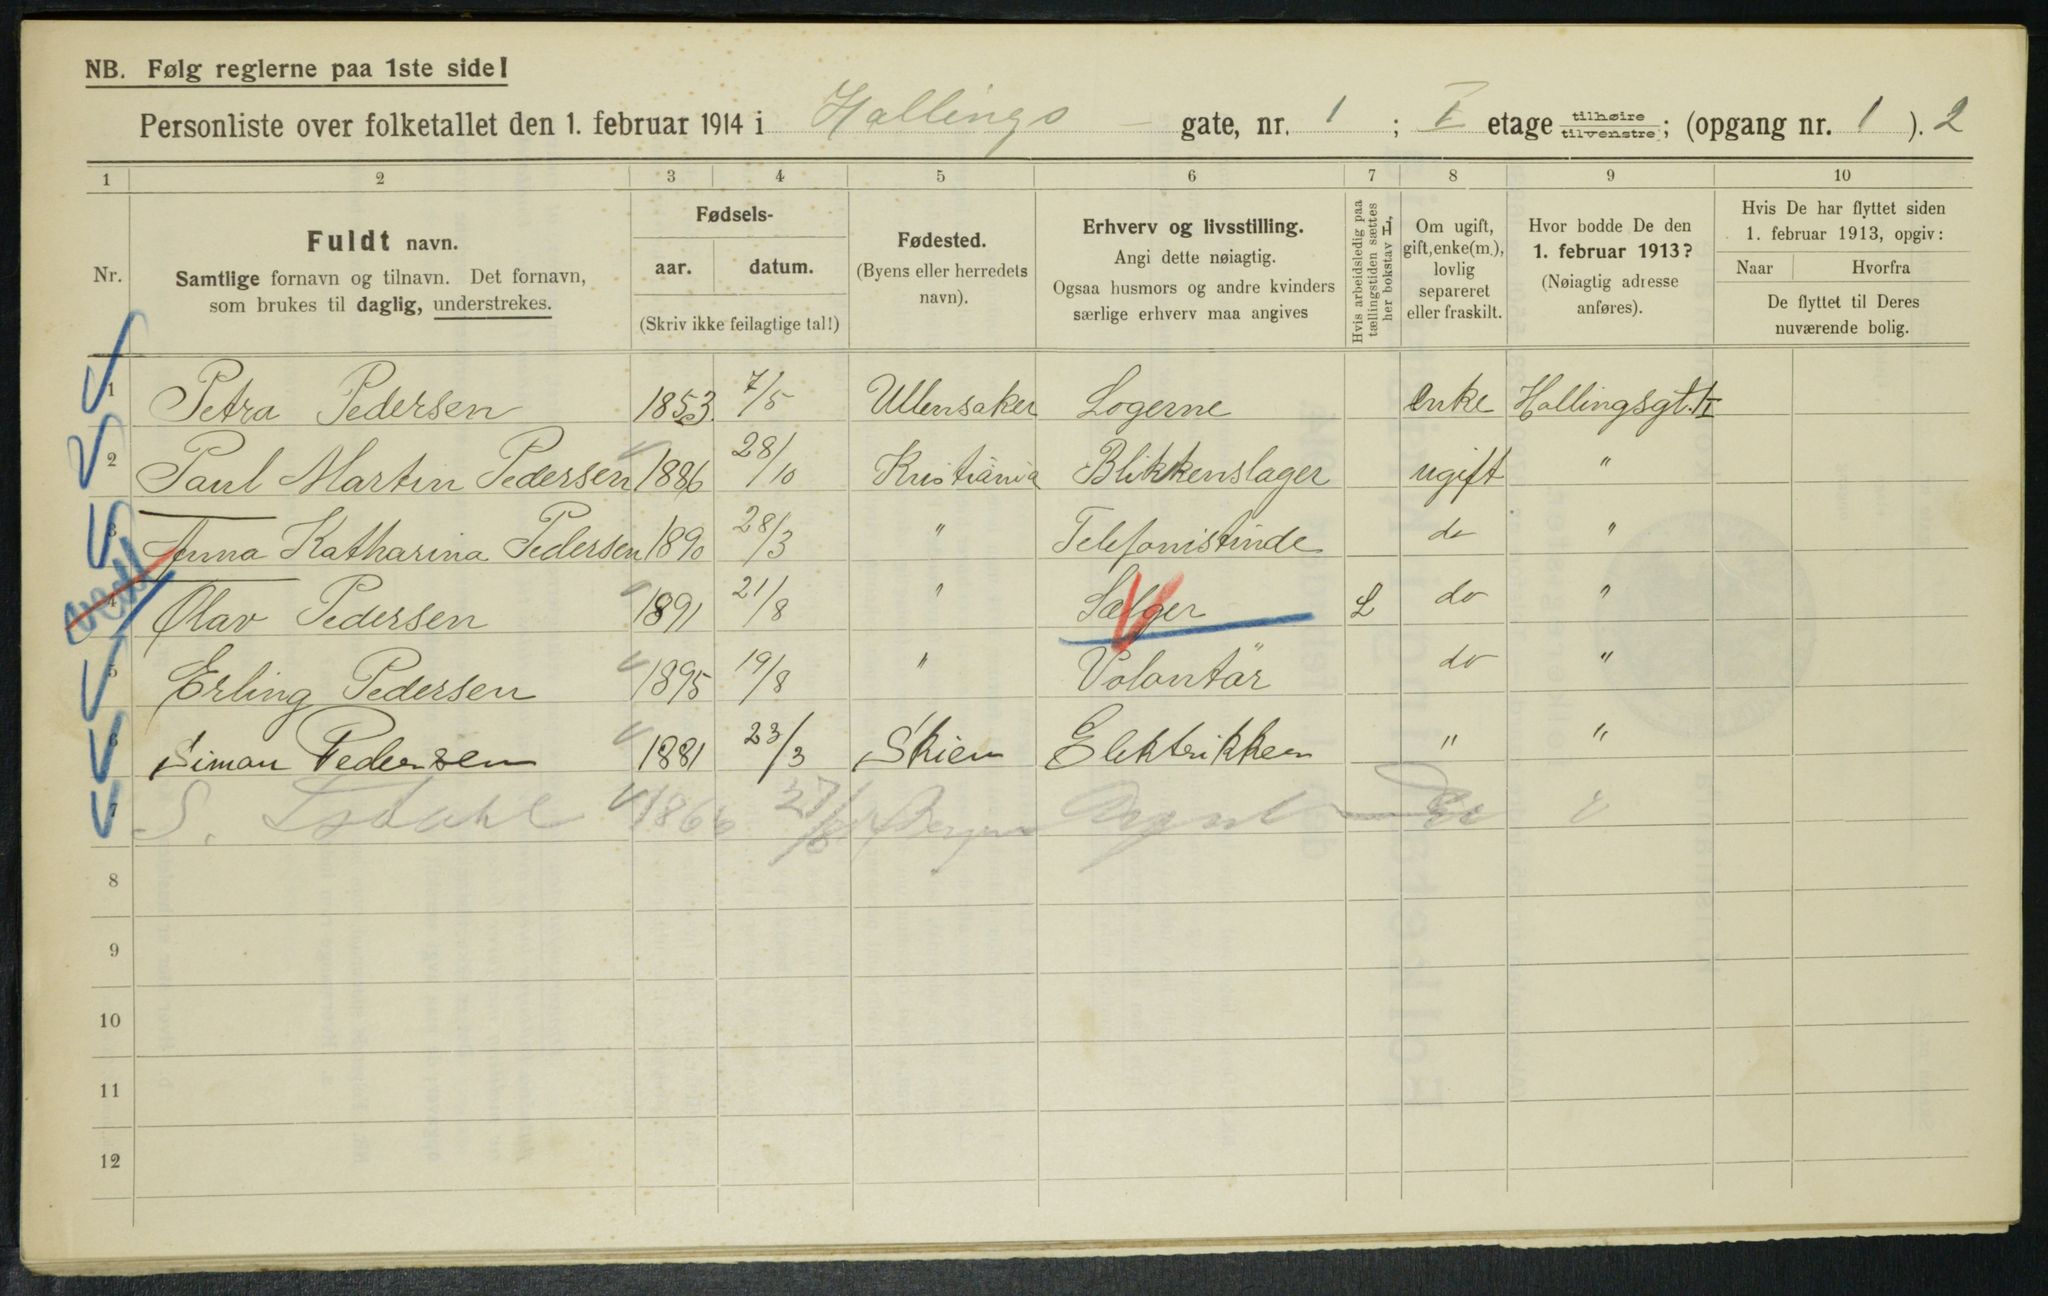 NB. Følg reglerne paa 1ste side!
Personliste over folketallet den 1. februar 1914 i Hallings gate, nr. 1 ; I etage tilhøire tilvenstre; (opgang nr. 1 ). 2
1 2 3 4 5 6 7 8 9 10
Nr.
Fuldt navn.
Samtlige fornavn og tilnavn. Det fornavn,
som brukes til daglig, understrekes.
Fødsels-
aar. datum.
(Skriv ikke feilagtige tal!)
Fødested.
(Byens eller herredets
navn).
Erhverv og livsstilling.
Angi dette nøiagtig.
Ogsaa husmors og andre kvinders
særlige erhverv maa angives
Hvis arbeidsledig paa
tællingstiden sættes
her bokstav L,
Om ugift,
gift, enke(m.),
lovlig
separeret
eller fraskilt.
Hvor bodde De den
1. februar 1913?
(Nøiagtig adresse
anføres).
Hvis De har flyttet siden
1. februar 1913, opgiv:
Naar Hvorfra
De flyttet til Deres
nuværende bolig.
1 Petra Pedersen 1853 7/5 Ullensaker Logerne enke Hallingsgt. 1/I
2 Paul Martin Pedersen 1886 28/10 Kristiania Blikkenslager ugift "
3 Anna Katharina Pedersen 1890 28/3 " Telefonistinde do "
4 Olav Pedersen 1891 21/8 " Sælger L do "
5 Erling Pedersen 1895 19/8 " Volontär do "
6 Simon Pedersen 1881 23/3 Skien Elektrikker " "
7 S. Isdahl 1866 Bergen Agent
8
9
10
11
12